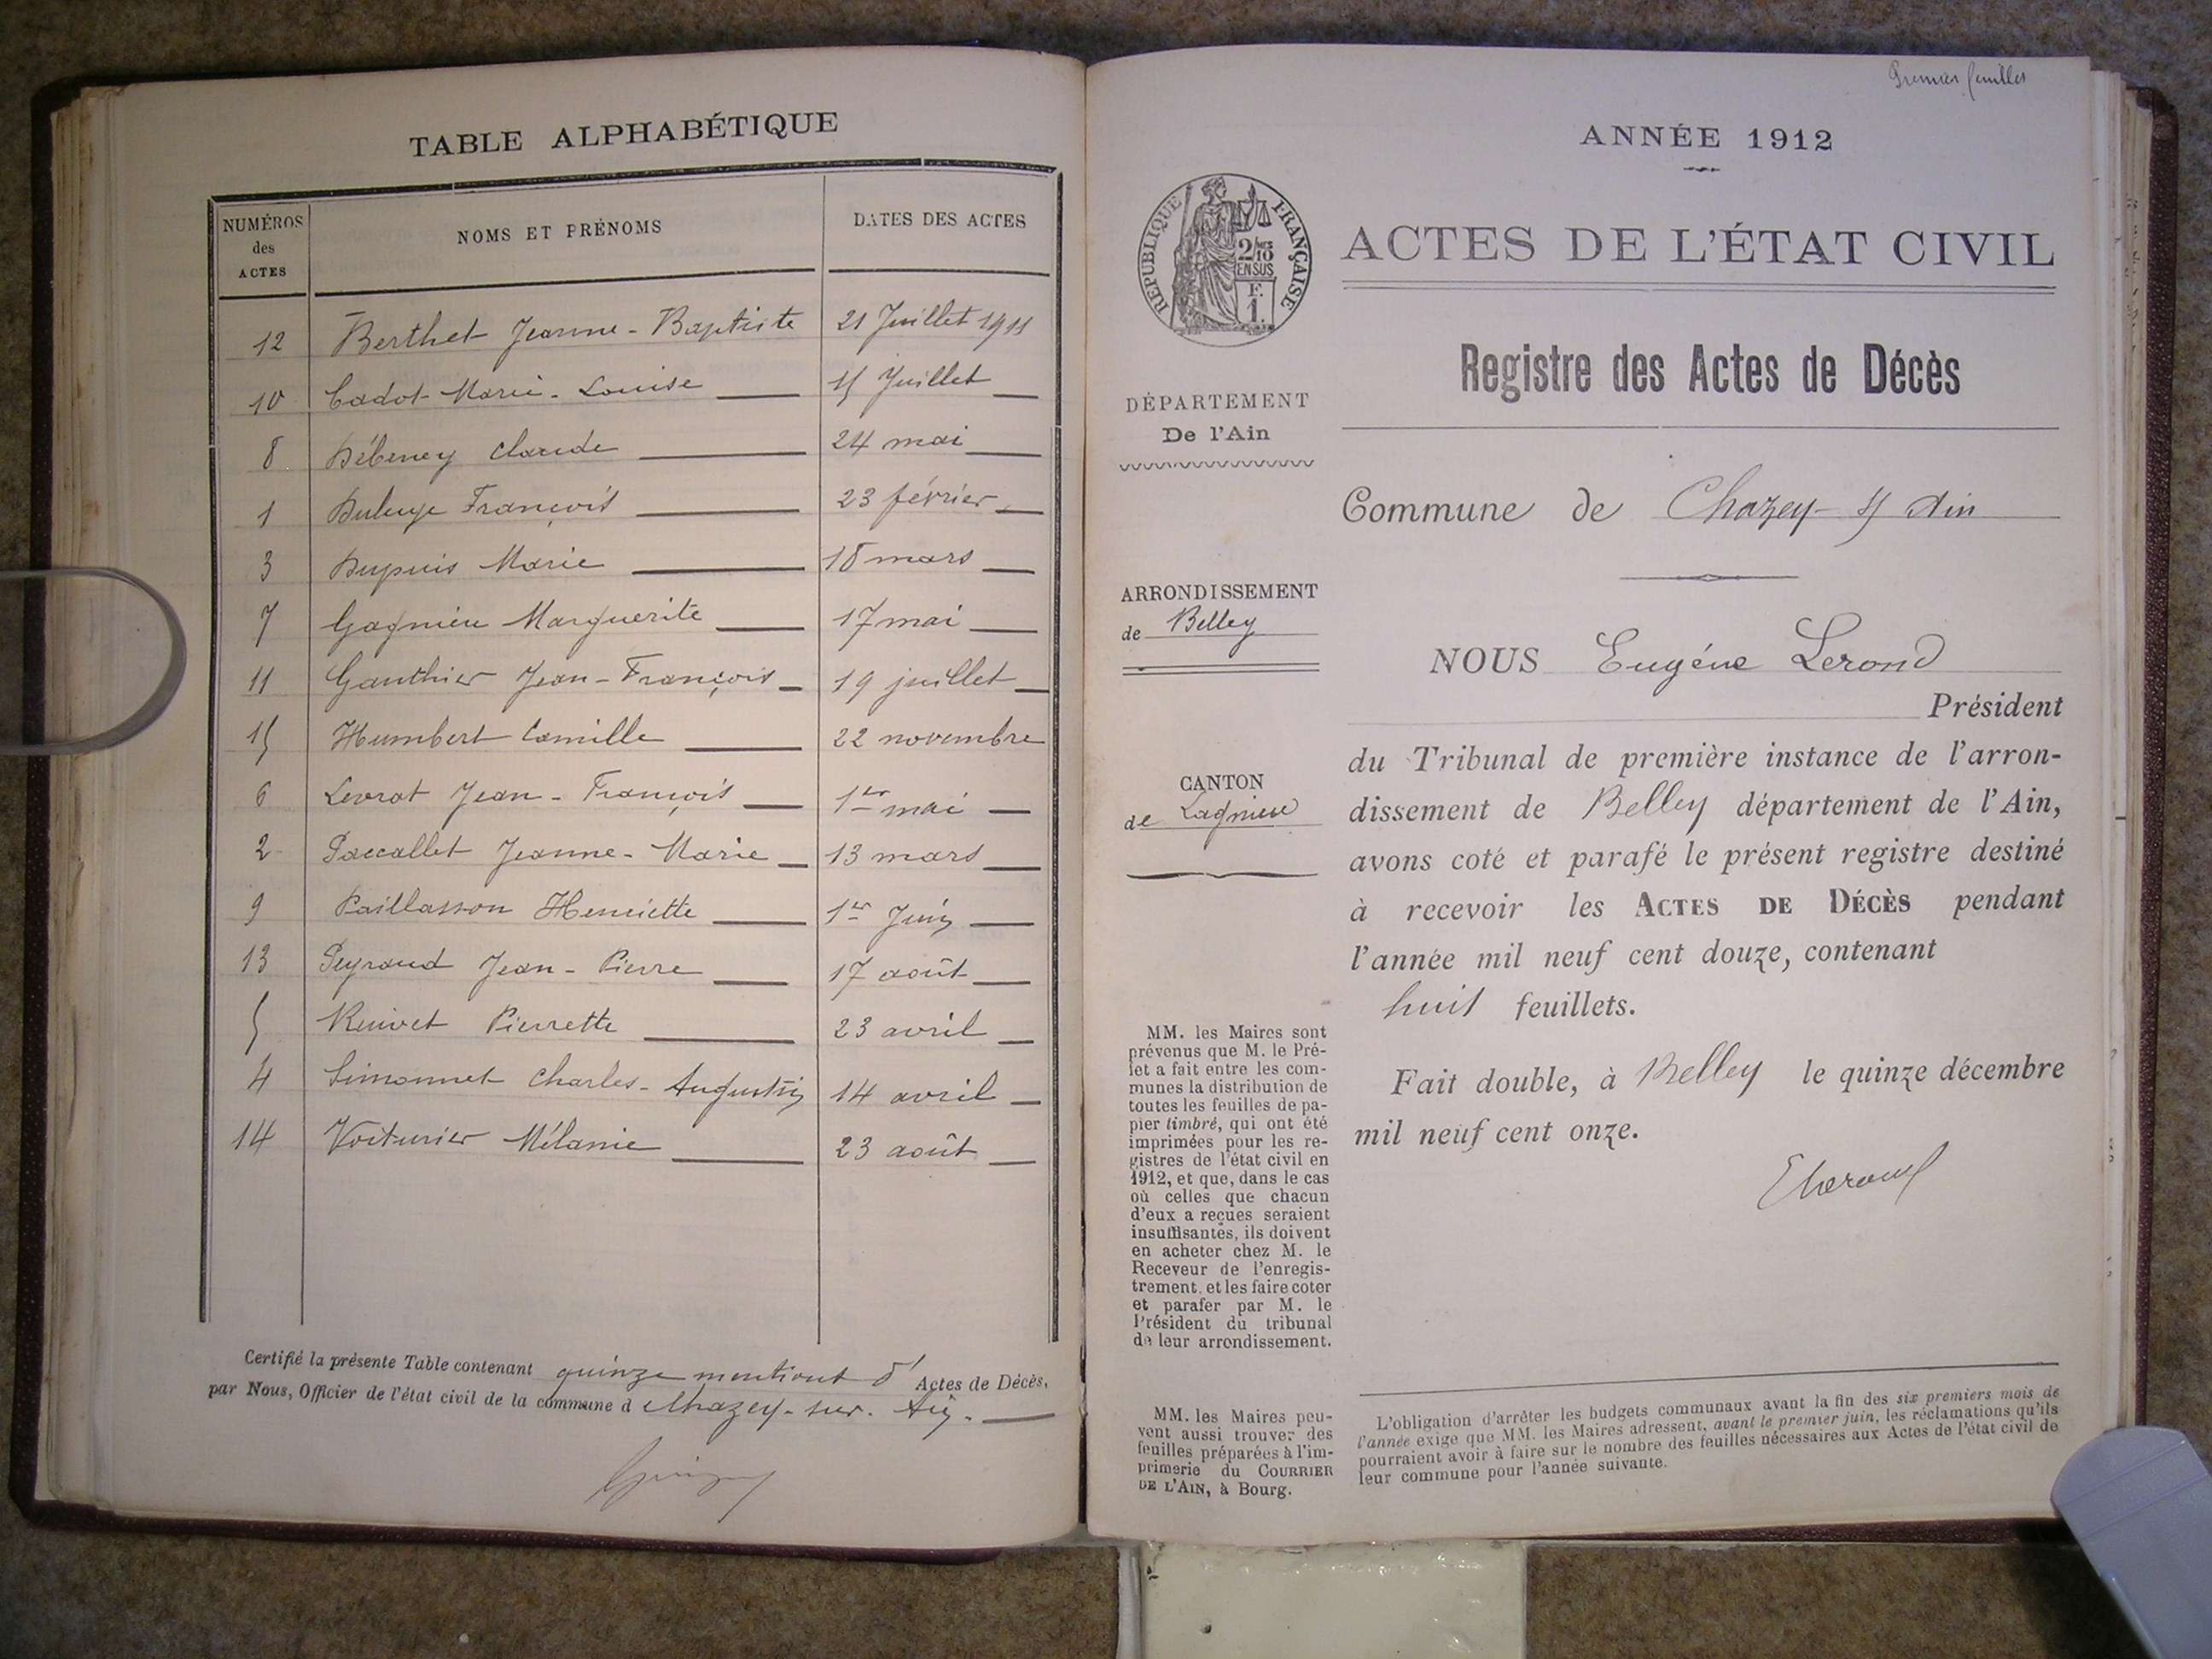 TABLE ALPHABÉTIQUE
NUMÉROS des ACTES NOMS ET PRÉNOMS DATES DES ACTES
12 Berthet Jeanne-Baptiste 21 Juillet 1911
10 Cadot Marie-Louise 15 Juillet
8 Débeney Claude 24 mai
1 François 23 février
3 Dupuis Marie 18 mars
7 Gagnieu Marguerite 17 mai
11 Gauthier Jean-François 19 juillet
15 Humbert Camille 22 novembre
6 Levrat Jean-François 1er mai
2 Paccallet Jeanne-Marie 13 mars
9 Paillasson Henriette 1er Juin
13 Peyraud Jean-Pierre 17 août
5 Pierrette 23 avril
4 Simonnet Charles-Augustin 14 avril
14 Voiturier Mélanie 23 août
Certifié la présente Table contenant quinze mentions d' Actes de Décès,
par Nous, Officier de l'état civil de la commune d Chazey-sur-Ain.
Premier feuillet
ANNÉE 1912
RÉPUBLIQUE FRANÇAISE
2/10
EN SUS
F.
1.
ACTES DE L'ÉTAT CIVIL
Registre des Actes de Décès
DÉPARTEMENT
De l'Ain
Commune de Chazey s/ Ain
ARRONDISSEMENT
de Belley
CANTON
de Lagnieu
NOUS Eugéne Lerond
Président
du Tribunal de première instance de l'arron-
dissement de Belley département de l'Ain,
avons coté et parafé le présent registre destiné
à recevoir les ACTES DE DÉCÈS pendant
l'année mil neuf cent douze, contenant
huit feuillets.
Fait double, à Belley le quinze décembre
mil neuf cent onze.
MM. les Maires sont
prévenus que M. le Pré-
fet a fait entre les com-
munes la distribution de
toutes les feuilles de pa-
pier timbré, qui ont été
imprimées pour les re-
gistres de l'état civil en
1912, et que, dans le cas
où celles que chacun
d'eux a reçues seraient
insuffisantes, ils doivent
en acheter chez M. le
Receveur de l'enregis-
trement, et les faire coter
et parafer par M. le
Président du tribunal
de leur arrondissement.
MM. les Maires peu-
vent aussi trouver des
feuilles préparées à l'im-
primerie du COURRIER
DE L'AIN, à Bourg.
L'obligation d'arrêter les budgets communaux avant la fin des six premiers mois de
l'année exige que MM. les Maires adressent, avant le premier juin, les réclamations qu'ils
pourraient avoir à faire sur le nombre des feuilles nécessaires aux Actes de l'état civil de
leur commune pour l'année suivante.